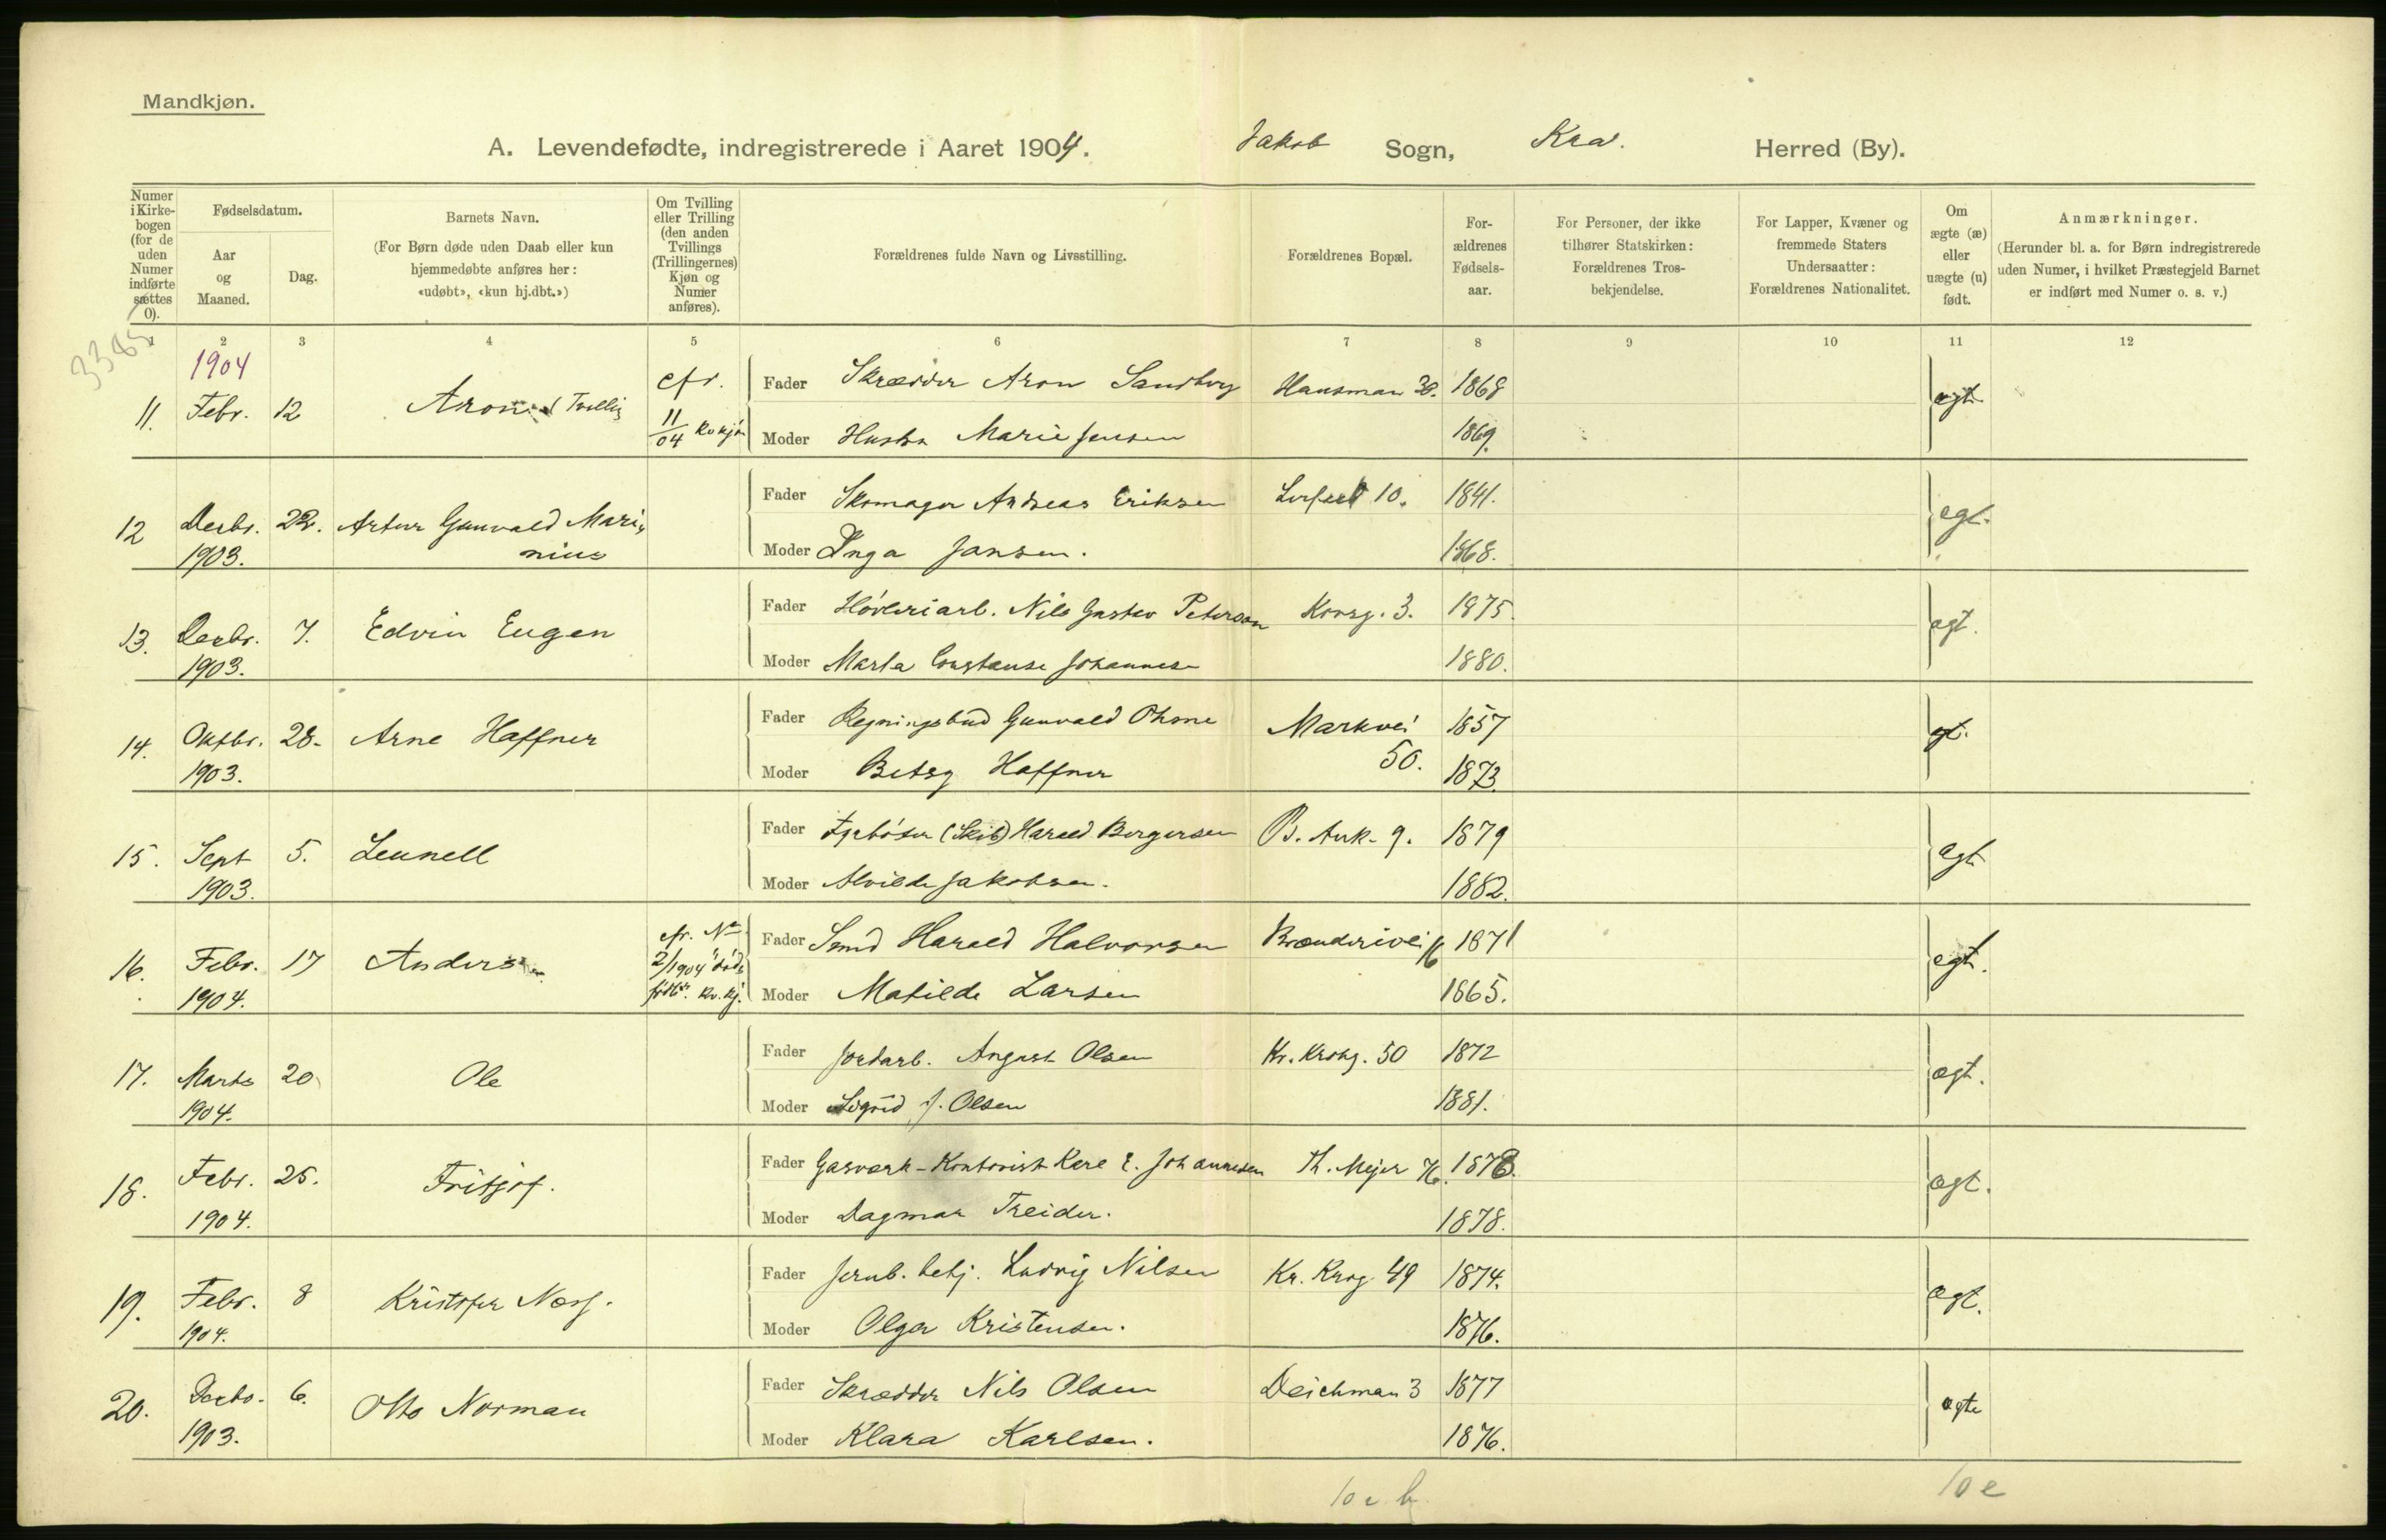 Mandkjøn.
A. Levendefødte, indregistrerede i Aaret 1904. Jakob Sogn, Kra. Herred (By).
Numer i Kirkebogen (for de uden Numer indførte sættes 0).
Fødselsdatum.
Aar og Maaned.
Dag.
Barnets Navn.
(For Børn døde uden Daab eller kun
hjemmedøbte anføres her:
«udøbt», «kun hj.dbt.»)
Om Tvilling
eller Trilling
(den anden
Tvillings
(Trillingernes)
Kjøn og
Numer
anføres).
Forældrenes fulde Navn og Livsstilling.
Forældrenes Bopæl.
For-
ældrenes
Fødsels-
aar.
For Personer, der ikke
tilhører Statskirken:
Forældrenes Tros-
bekjendelse.
For Lapper, Kvæner og
fremmede Staters
Undersaatter:
Forældrenes Nationalitet.
Om
ægte (æ)
eller
uægte (u)
født.
Anmærkninger.
(Herunder bl. a. for Børn indregistrerede
uden Numer, i hvilket Præstegjeld Barnet
er indført med Numer o. s. v.)
1 2 3 4 5 6 7 8 9 10 11 12
1904
11. Febr. 12 Aron cfr. 11/04 Fader Skrædder Aron Sandberg Hausman 30. 1868 ægt.
Moder Hustru Marie Jensen 1869.
12 Decbr. 22. Artur Gunvald Mari- Fader Skomager Andreas Eriksen 10. 1841. ægt.
1903. nius Moder Inga Jansen. 1868.
13. Decbr. 7. Edvin Eugen Fader Høvleriarb. Nils Gustav Peterson Korsg. 3. 1875. ægt.
1903. Moder Marta Constanse Johannesen 1880.
14. Oktbr. 28. Arne Haffner Fader Regningsbud Gunvald Ohme Markvei 1857 ægt.
1903. Moder Betsy Haffner 50. 1873.
15. Sept 5. Lennell Fader Fyrbøter (Skib) Harald Borgersen B. Ank. 9. 1879 ægt
1903. Moder Alvilde Jakobsen. 1882.
16. Febr. 17 Anders cfr. No 2/1904 kv. kj. Fader Smed Harald Halvorsen Brænderivei 16 1871 ægt.
1904. Moder Matilde Larsen 1865.
17. Marts 20 Ole Fader Jordarb. August Olsen Kr. Krohg. 50 1872 ægt.
1904. Moder Sigrid J. Olsen 1881.
18. Febr. 25. Fritjof. Fader Gasværk-Kontorist Kare E. Johannesen Th. Mejer 76. 1878. ægt.
1904. Moder Dagmar Treider. 1878.
19. Febr. 8 Kristofer Næss. Fader Jernb. betj. Ludvig Nilsen Kr. Krog 49 1874. ægt.
1904. Moder Olga Kristensen. 1876.
20. Decbr. 6. Otto Norman Fader Skrædder Nils Olsen Deichman 3 1877 ægte
1903. Moder Klara Karlsen. 1876.
10 e